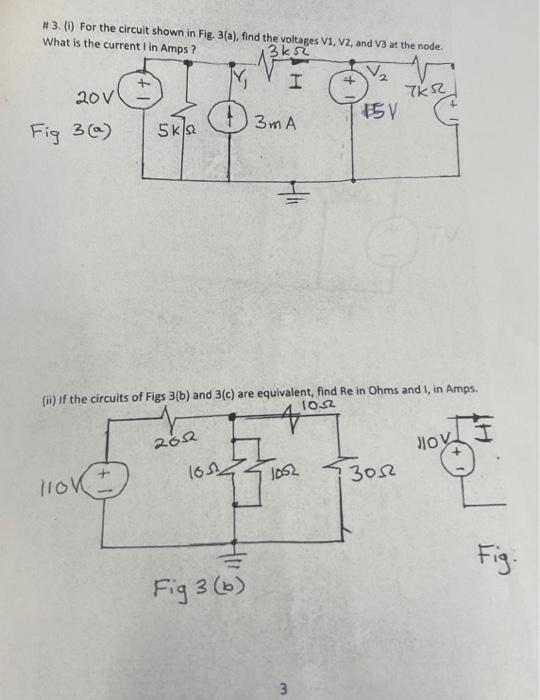 # 3. (i) For the circuit shown in Fig. 3(a), find the voltages V1, V2, and V3 at the node.
What is the current I in Amps ?
3kΩ
V1
I
V2
7kΩ
20V
15V
Fig 3(a)
5kΩ
3mA
(ii) If the circuits of Figs 3(b) and 3(c) are equivalent, find Re in Ohms and I, in Amps.
10Ω
20Ω
110V
I
10Ω
10Ω
30Ω
110V
Fig.
Fig 3(b)
3